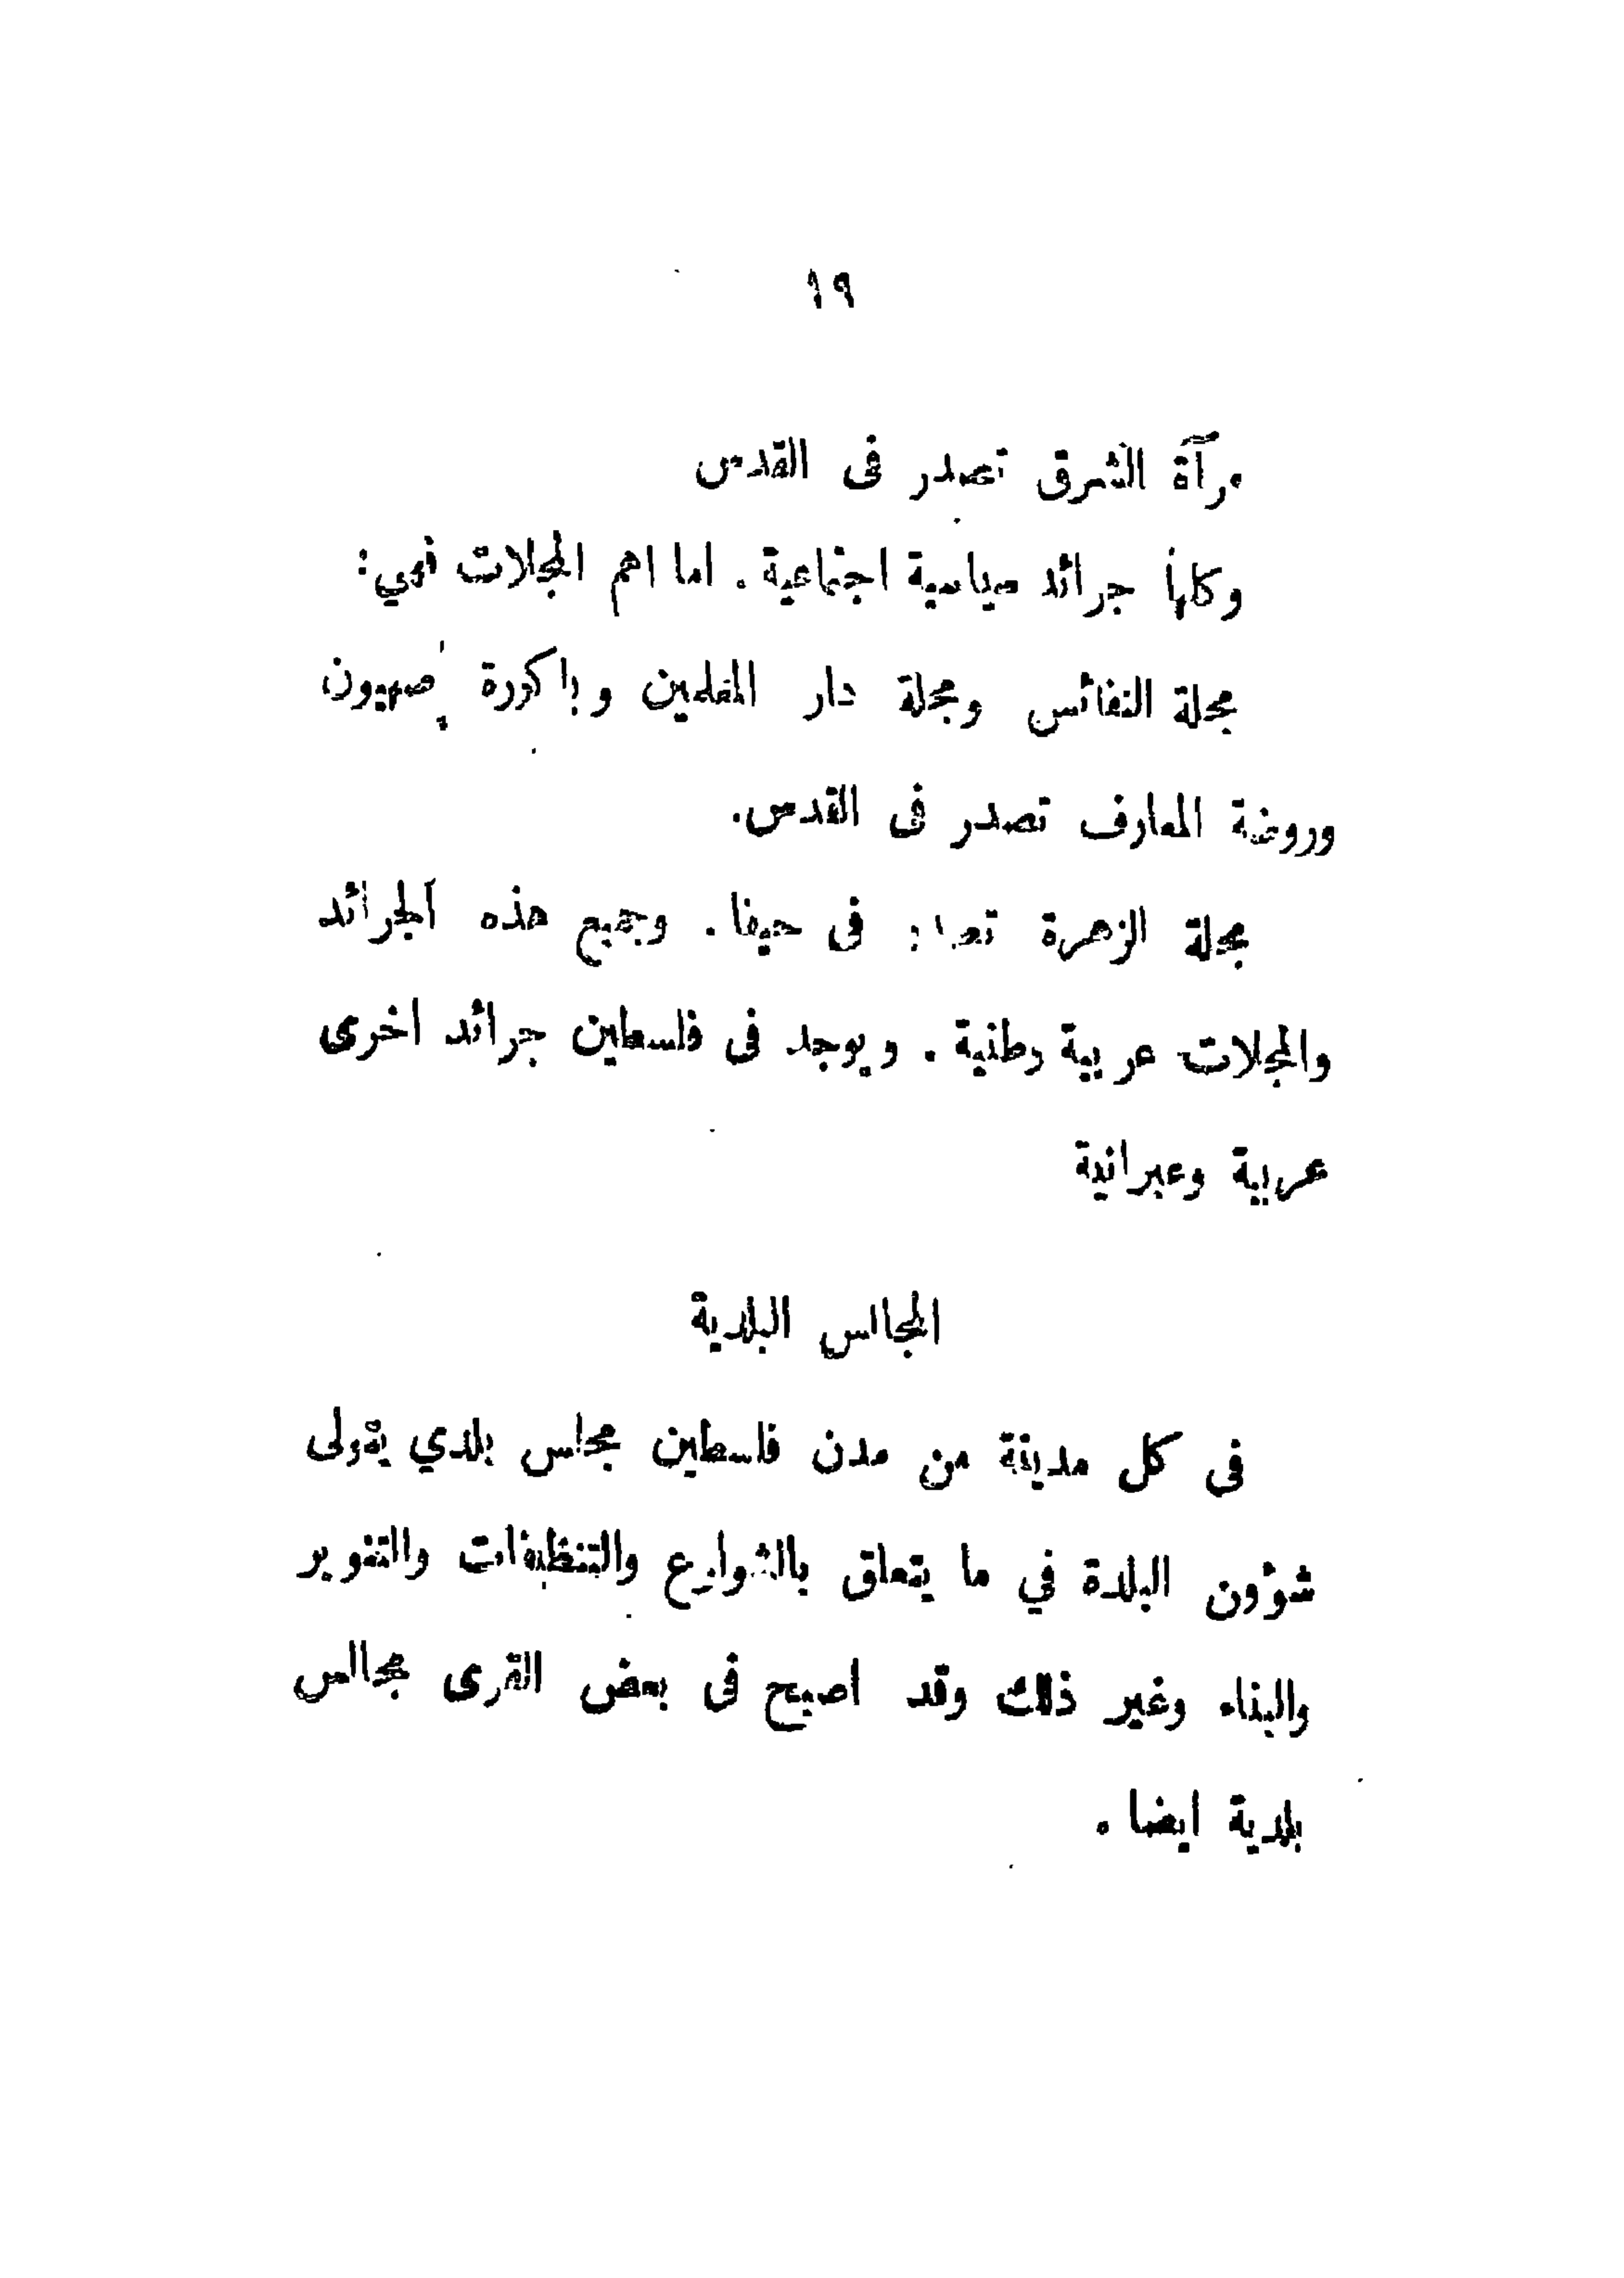 ١٩
مرآة الشرق تصدر فى القدس
وكلها جرائد سياسية اجتماعية . اما اهم المجلات فهي :
مجلة النفائس ومجلة دار المعلمين وباكورة صهيون
وروضة المعارف تصدر فى القدس.
مجلة الزهرة تصدر فى حيفا . وجميع هذه الجرائد
والمجلات عربية وطنية . ويوجد فى فلسطين جرائد اخرى
عربية وعبرانية
المجالس البلدية
فى كل مدينة من مدن فلسطين مجلس بلدي يتولى
شؤون البلدة في ما يتعلق بالشوارع والتنظيفات والتنوير
والبناء وغير ذلك وقد اصبح فى بعض القرى مجالس
بلدية ايضا .